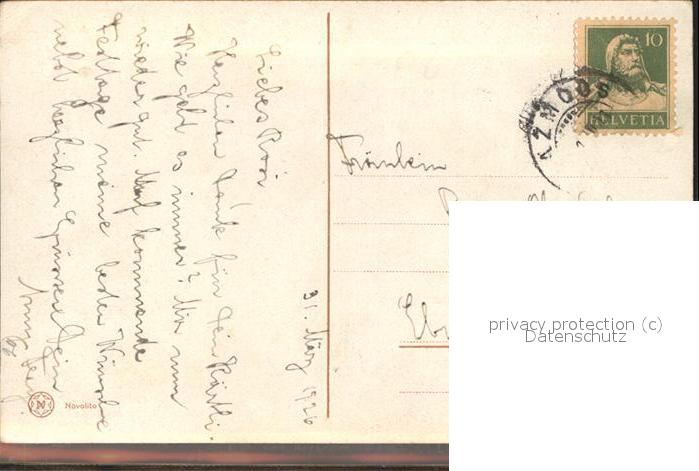 31. März 1926
Liebes Rösi
Herzlichen Dank für Dein Kärtli.
Wie geht es immer? Mir nun
wieder gut. Auf kommende
Festtage meine besten Wünsche
nebst herzlichen Grüssen Dein
Novolito
10
HELVETIA
AZMOOS
Fräulein
privacy protection (c)
Datenschutz